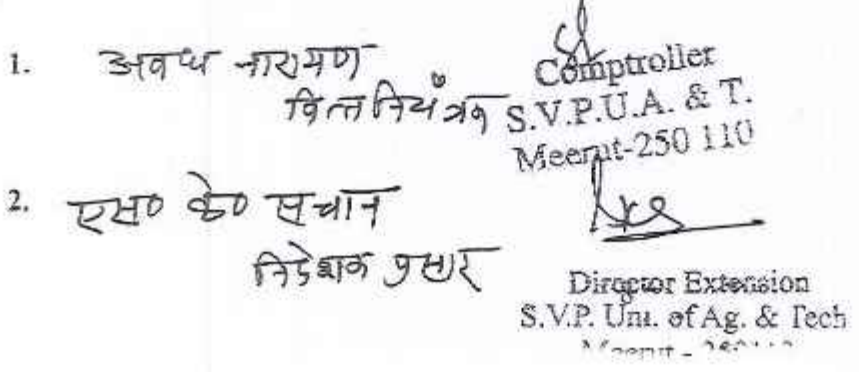 1. अवध नारायण
वित्त नियँत्रक
Comptroller
S.V.P.U.A. & T.
Meerut-250 110
2. एस० के० सचान
निदेशक प्रसार
Director Extension
S.V.P. Uni. of Ag. & Tech
Meerut -